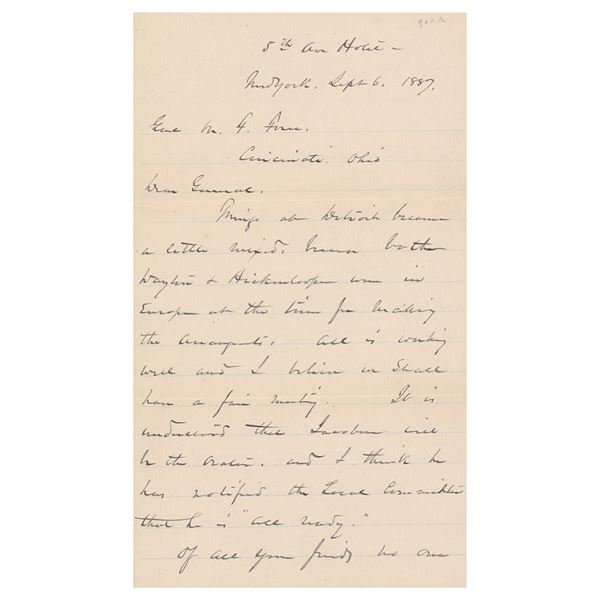 5th Ave Hotel -
New York. Sept 6. 1887.
Genl M. F. Force.
Cincinnati Ohio
Dear General.
Things at Detroit became
a little mixed, because both
Dayton & Hickenlooper were in
Europe at the time for making
the arrangements. All is working
well and I believe we shall
have a fair meeting. It is
understood that Jacobson will
be the orator. and I think he
has notified the Local Committee
that he is "all ready."
Of all your friends no one